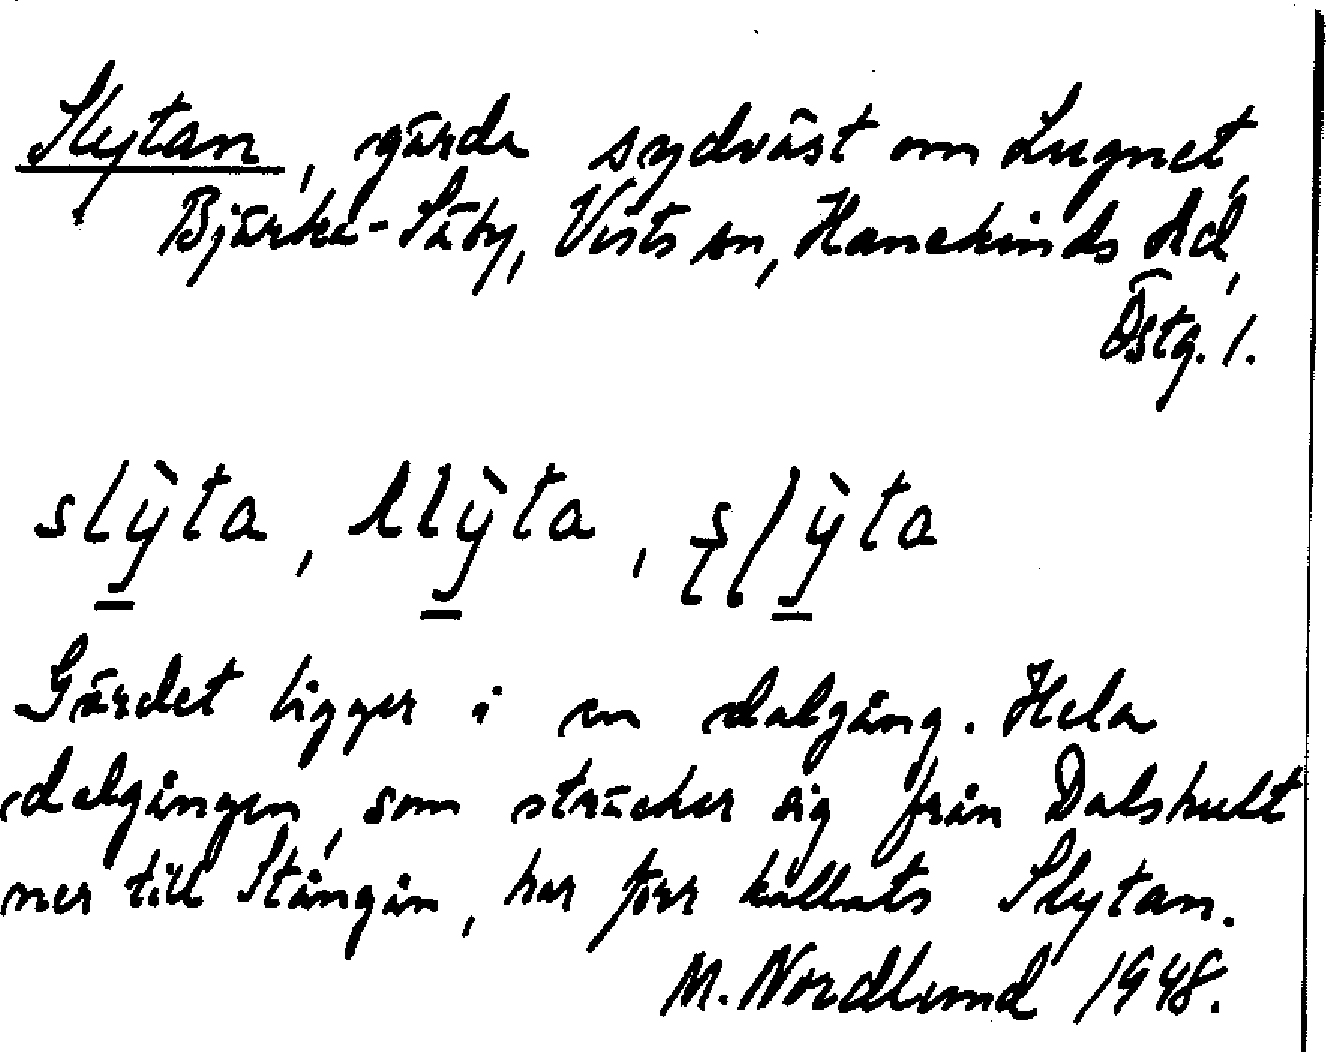 Slytan, gärde sydväst om Lugnet,
Bjärka-Säby, Vists sn, Hanekinds hd,
Östg. l.
slỳta, llỳta, ʂlỳta
Gärdet ligger i en dalgång. Hela
dalgången, som sträcker sig från Dalshult
ner till Stångån, har förr kallats Slytan.
M. Nordlund 1948.